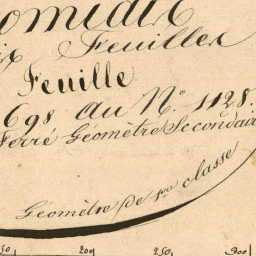 Feuilles
Feuille
698 Au N.º 1128.
Ferré Géomètre Secondair
Géomètre De 1re classe
50 200 250 300